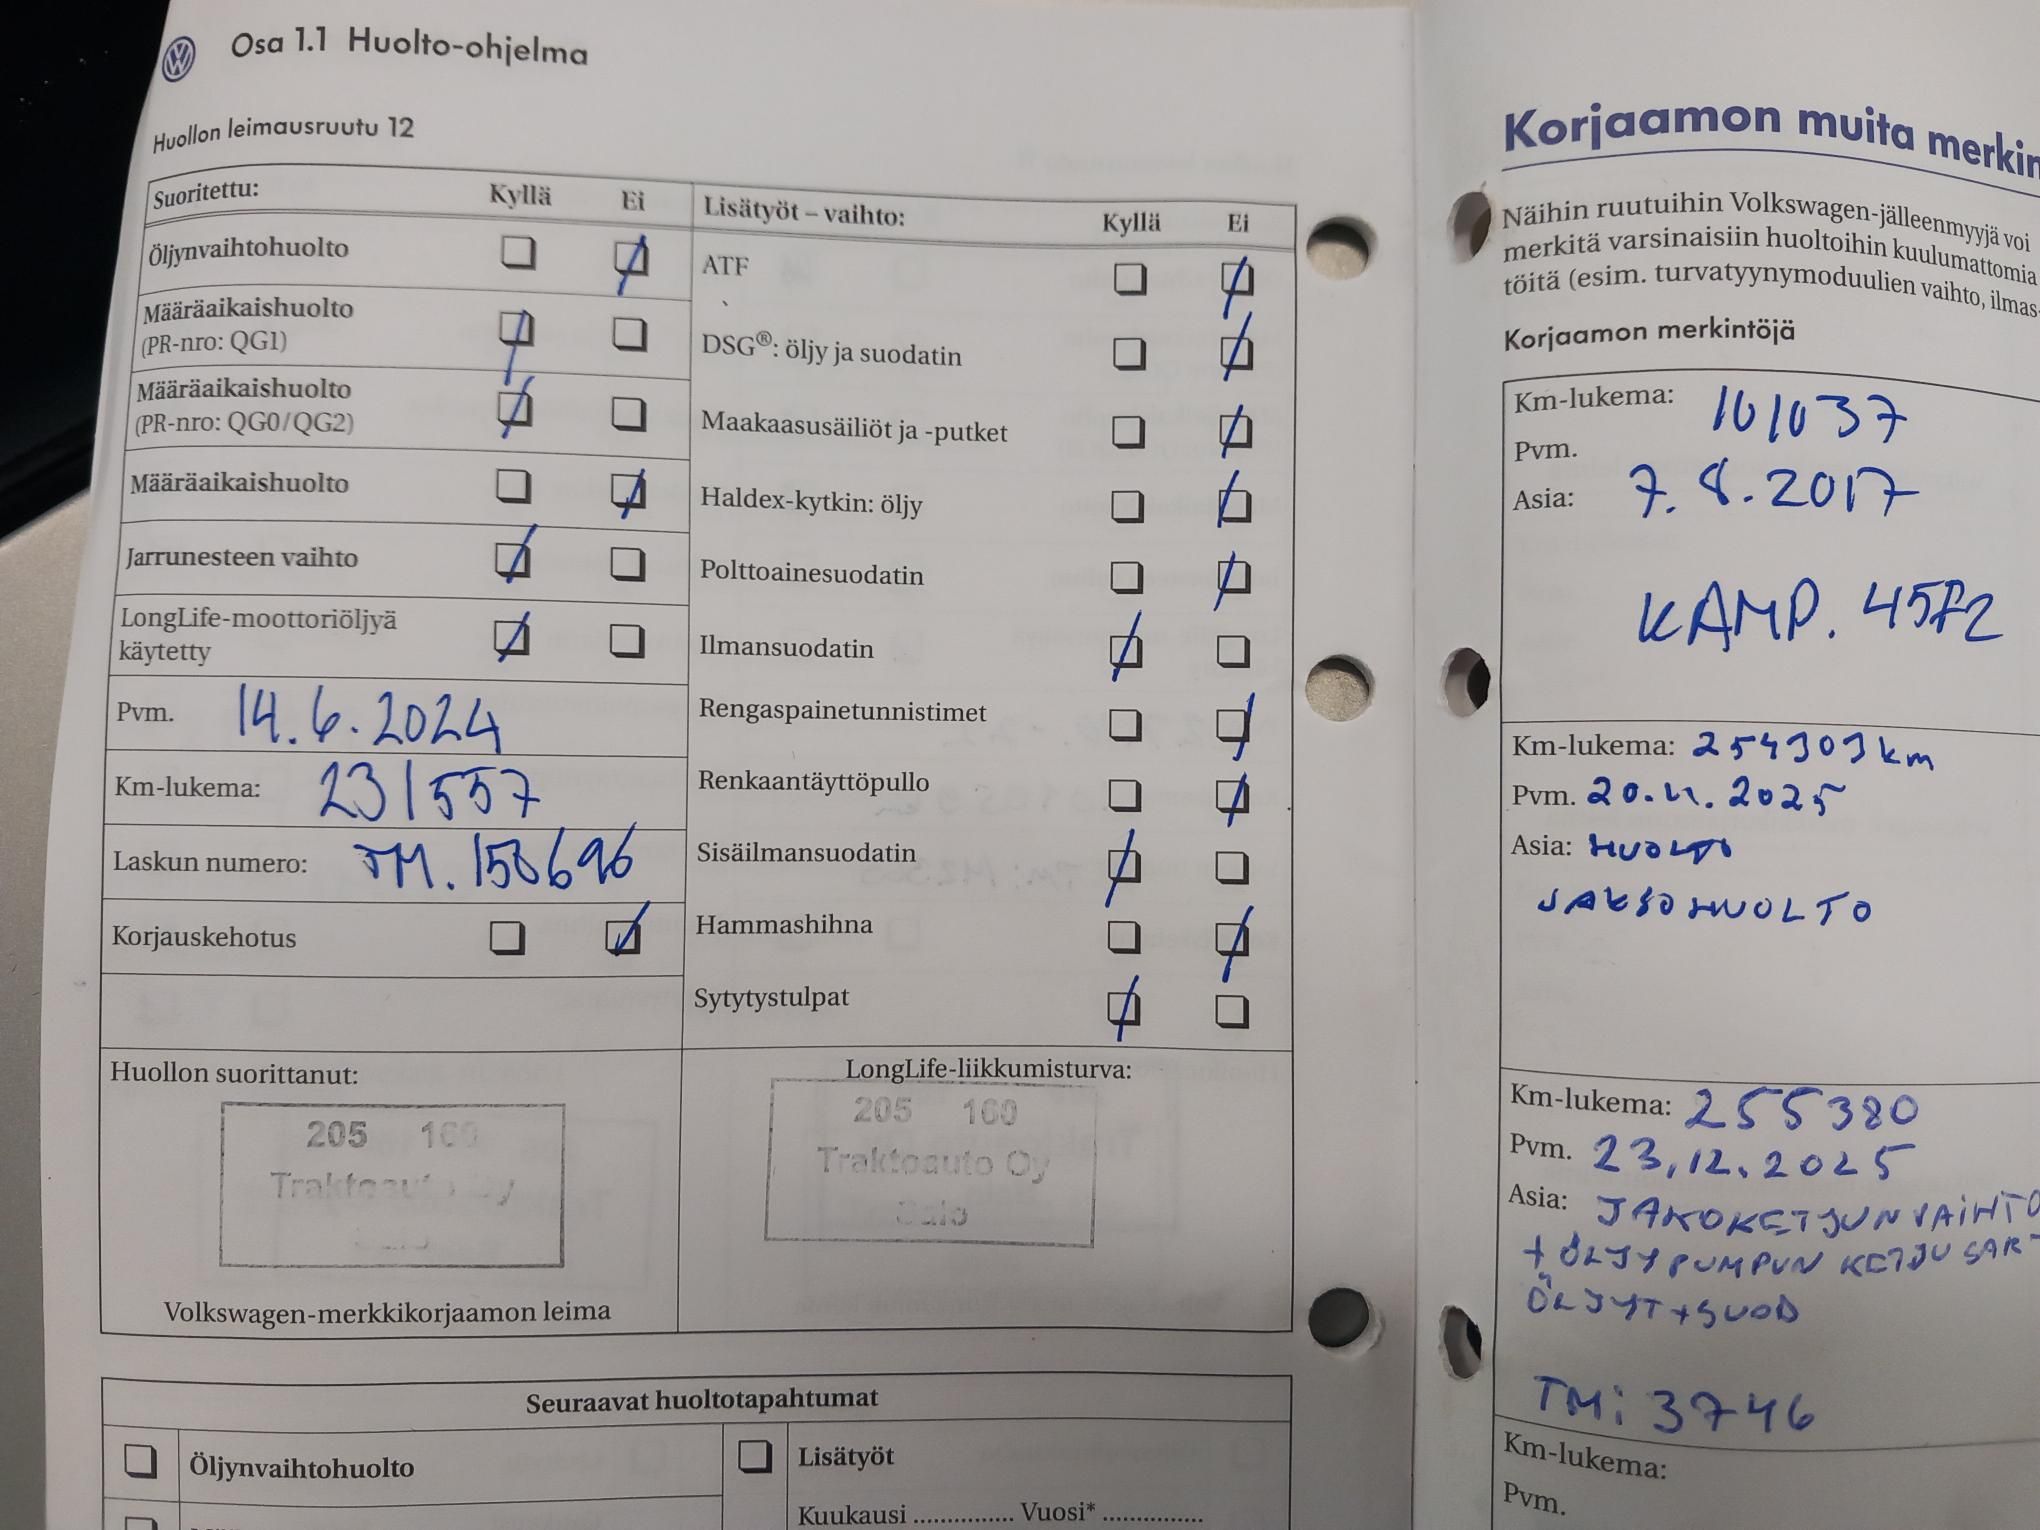 Osa 1.1 Huolto-ohjelma
Huollon leimausruutu 12
Suoritettu: Kyllä Ei
Öljynvaihtohuolto
Määräaikaishuolto
(PR-nro: QG1)
Määräaikaishuolto
(PR-nro: QG0/QG2)
Määräaikaishuolto
Jarrunesteen vaihto
LongLife-moottoriöljyä
käytetty
Pvm. 14.6.2024
Km-lukema: 231557
Laskun numero: TM. 158696
Korjauskehotus
Lisätyöt – vaihto: Kyllä Ei
ATF
DSG®: öljy ja suodatin
Maakaasusäiliöt ja -putket
Haldex-kytkin: öljy
Polttoainesuodatin
Ilmansuodatin
Rengaspainetunnistimet
Renkaantäyttöpullo
Sisäilmansuodatin
Hammashihna
Sytytystulpat
Huollon suorittanut:
205 160
Traktoauto Oy
Volkswagen-merkkikorjaamon leima
LongLife-liikkumisturva:
205 160
Traktoauto Oy
Salo
Seuraavat huoltotapahtumat
Öljynvaihtohuolto
Lisätyöt
Kuukausi ............... Vuosi* ...............
Korjaamon muita
Näihin ruutuihin Volkswagen-jälleenmyyjä voi
merkitä varsinaisiin huoltoihin kuulumattomia
töitä (esim. turvatyynymoduulien vaihto, ilmas-
Korjaamon merkintöjä
Km-lukema: 101037
Pvm.
Asia: 7.8.2017
KAMP. 45F2
Km-lukema: 254303 km
Pvm. 20.11.2025
Asia: HUOLTO
JAKSOHUOLTO
Km-lukema: 255380
Pvm. 23.12.2025
Asia: JAKOKETJUN VAIHTO
+ ÖLJYPUMPUN KETJU SAR
ÖLJYT + SUOD
TM: 3746
Km-lukema:
Pvm.